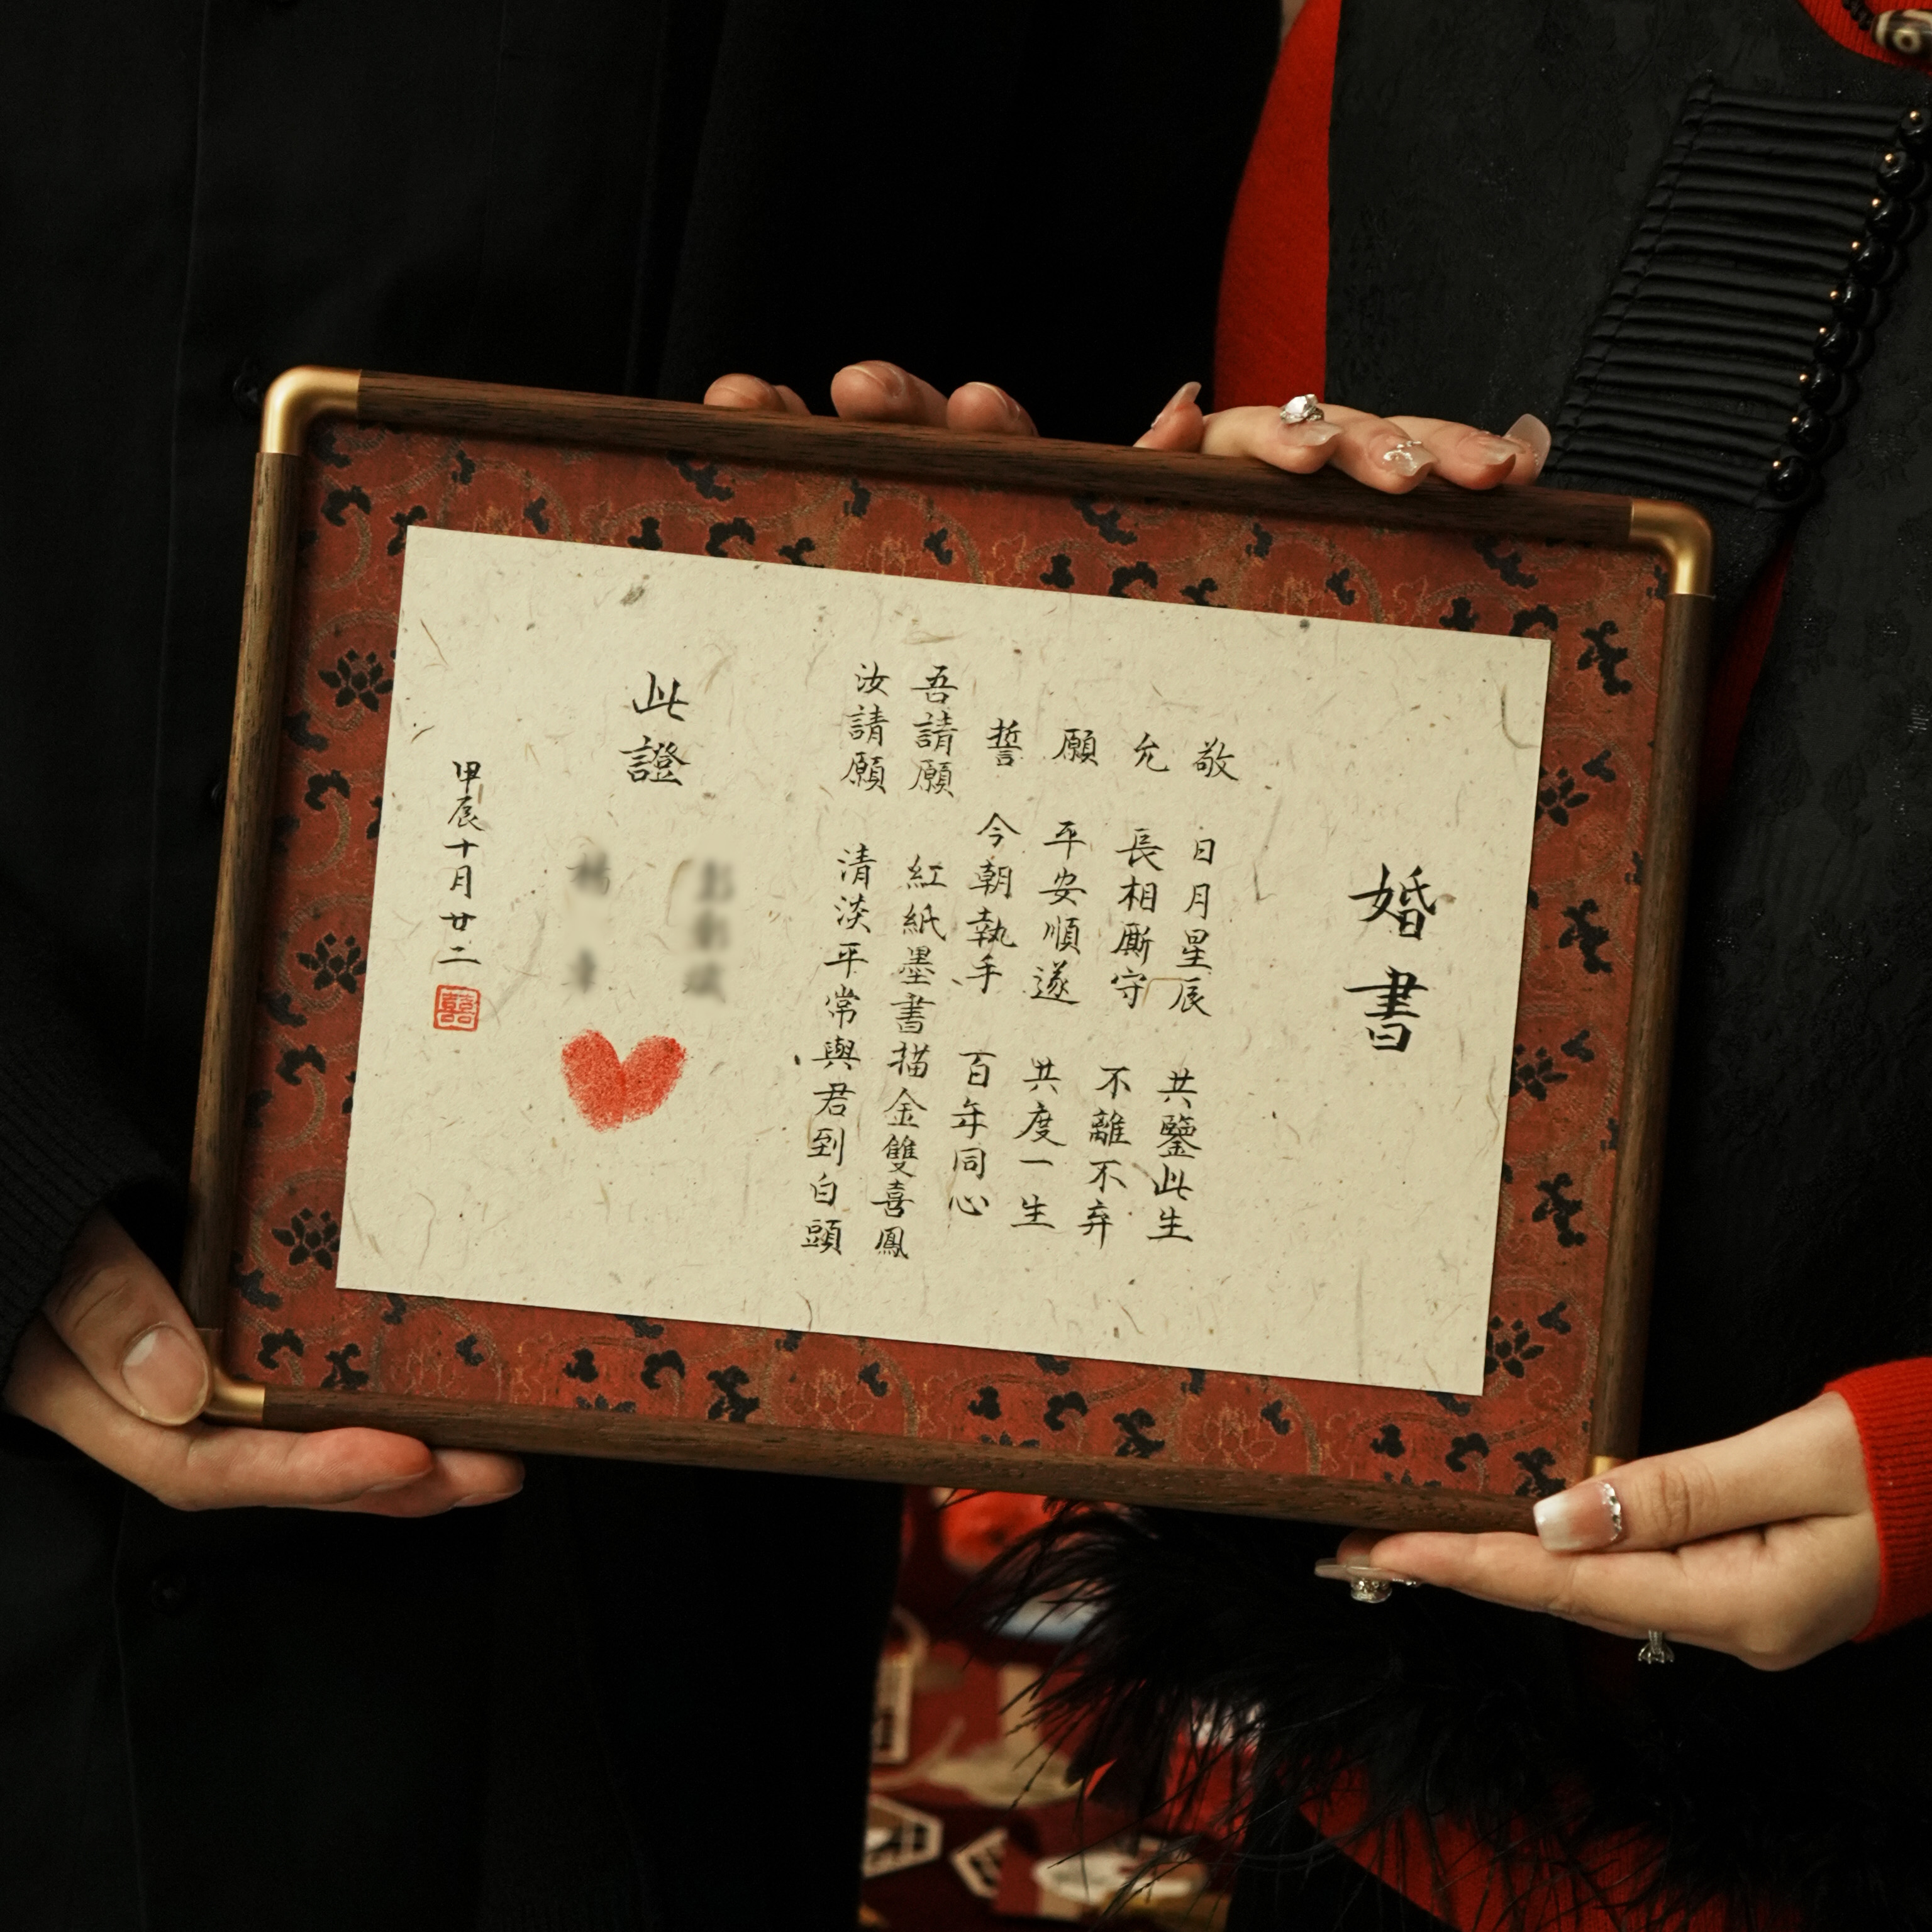 婚書
敬 日月星辰 共鑒此生
允 長相厮守 不離不弃
願 平安順遂 共度一生
誓 今朝執手 百年同心
吾請願 紅紙墨書描金雙喜鳳
汝請願 清淡平常與君到白頭
此證
甲辰十月廿二
囍